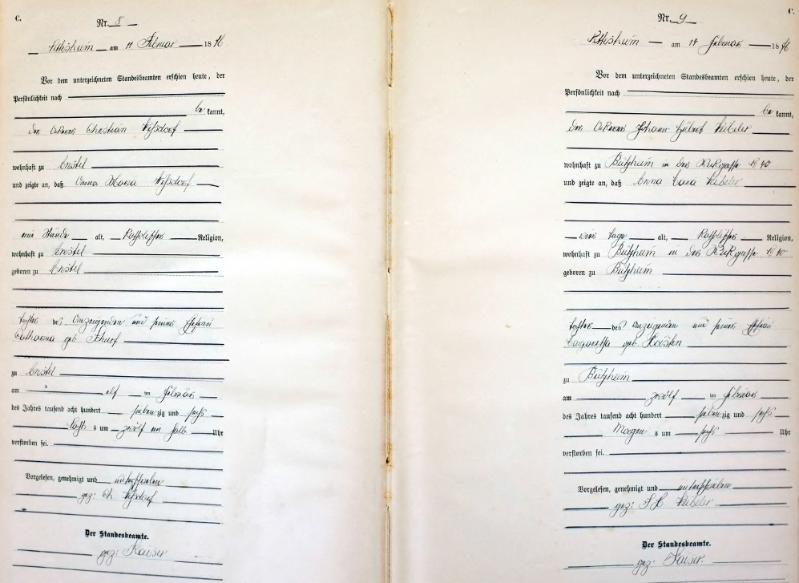 C.
Nr. 8
am 11 Februar 1876
Vor dem unterzeichneten Standesbeamten erschien heute, der
Persönlichkeit nach
be kannt,
der Ackerer Christian
wohnhaft zu
und zeigte an, daß Anna Maria
eine Stunde alt, katholischer Religion,
wohnhaft zu
geboren zu
Tochter des Anzeigenden und seiner Ehefrau
Catharina geb.
zu
am elf ten Februar
des Jahres tausend acht hundert sieben zig und sechs
Nachts um zwölf ein halb Uhr
verstorben sei.
Vorgelesen, genehmigt und unterschrieben
gez: Ch.
Der Standesbeamte.
gez: Kaiser
C.
Nr. 9
am 14 Februar 1876
Vor dem unterzeichneten Standesbeamten erschien heute, der
Persönlichkeit nach
be kannt,
der Ackerer Johann Hubert
wohnhaft zu Bützheim in der No 40
und zeigte an, daß Anna
Tage alt, katholischer Religion,
wohnhaft zu Bützheim in der No 40
geboren zu Bützheim
Tochter des Anzeigenden und seiner Ehefrau
Margaretha geb.
zu Bützheim
am zwölf ten Februar
des Jahres tausend acht hundert sieben zig und sechs
Morgens um sechs Uhr
verstorben sei.
Vorgelesen, genehmigt und unterschrieben
gez: J. H.
Der Standesbeamte.
gez: Kaiser